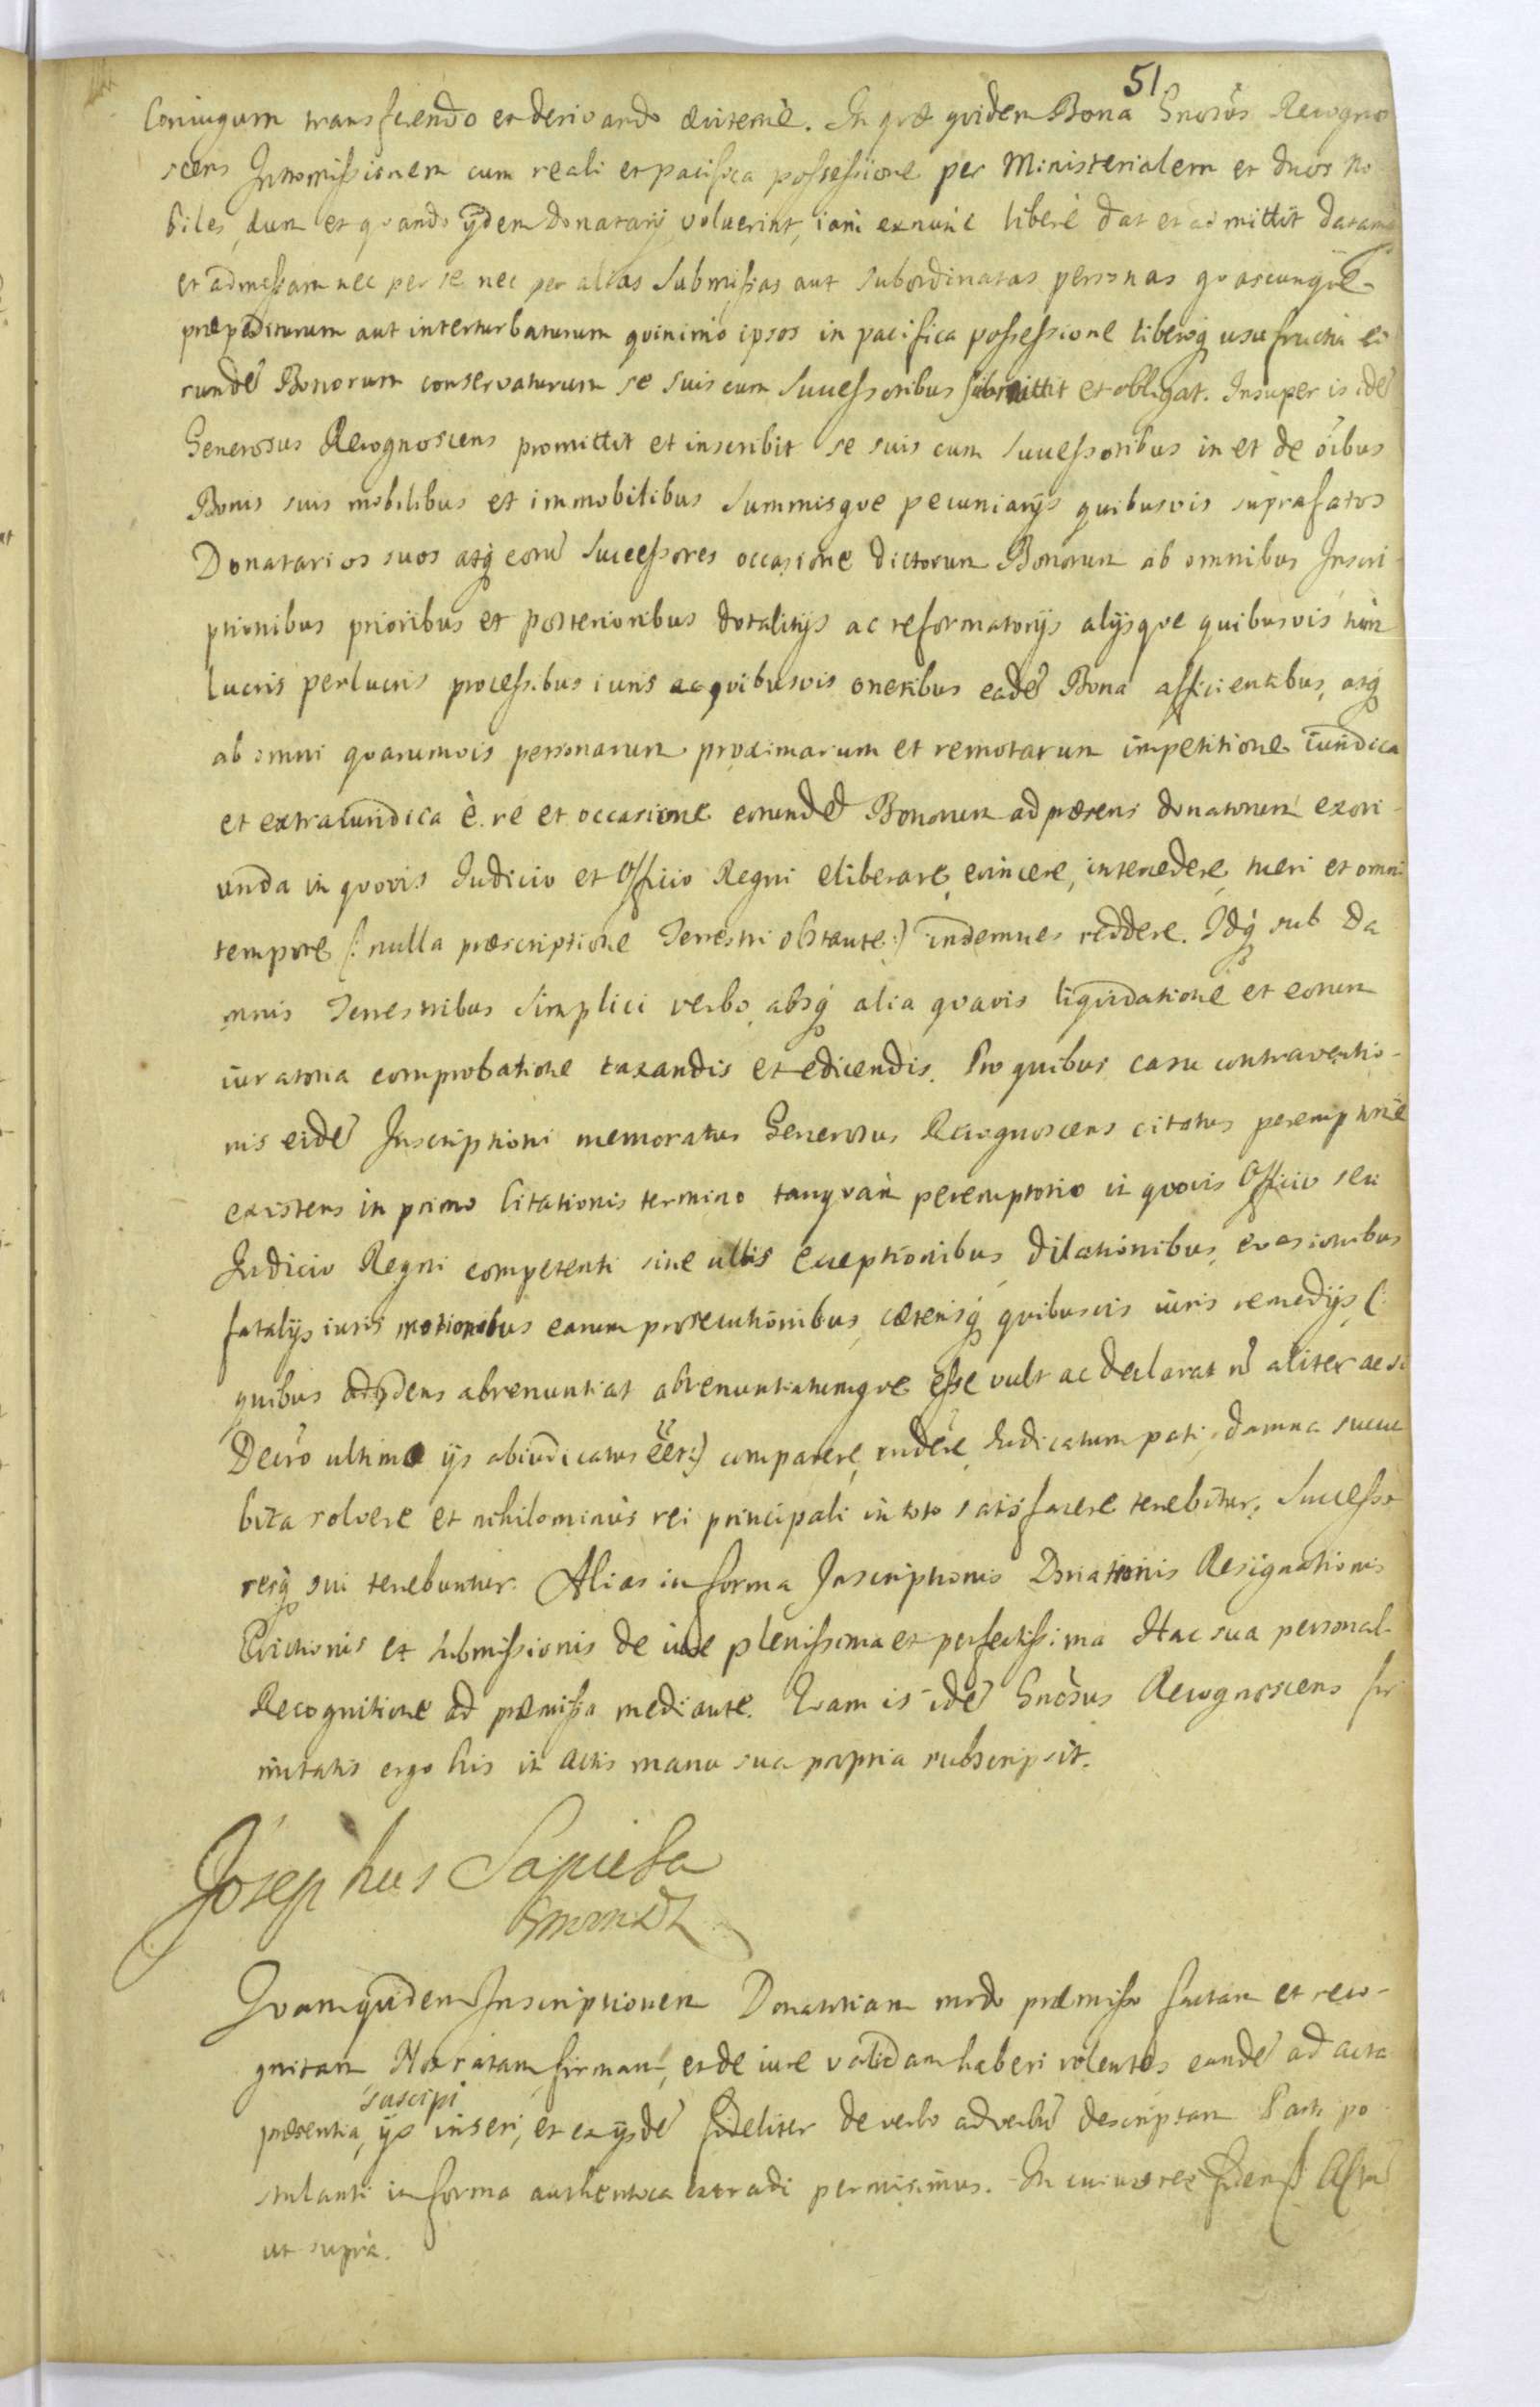 51
Coniugum transferendo et derivando æviternè. In quæ quidem Bona Gnosus Recogno
scens Intromissionem cum reali et pacifica possessione per Ministerialem et duos No
biles, dum et quando ijdem Donatarij voluerint, iam exnunc liberè dat et admittit datamq
et admissam nec per se nec per alias submissas aut subordinatas personas quascunque
præpediturum aut interturbaturum quinimo ipsos in pacifica possessione liberoq usufructu eo
rundẽ Bonorum conservaturum se suis cum Successoribus submittit et obligat. Insuper is idẽ
Generosus Recognoscens promittit et inscribit se suis cum Successoribus in et de õibus
Bonis suis mobilibus et immobilibus Summisque pecuniarijs quibusvis suprafatos
Donatarios suos atq eorũ Successores occasione dictorum Bonorum ab omnibus Inscri-
ptionibus prioribus et posterioribus dotalitijs ac reformatorijs alijsque quibusvis tùm
lucris perlucris processibus iuris ac quibusvis oneribus eadẽ Bona afficientibus, atq
ab omni quarumvis personarum proximarum et remotarum impetitione iuridica
et extraiuridica è re et occasione eorundẽ Bonorum ad præsens donatorum exori-
unda in quovis Iudicio et Officio Regni eliberare, evincere, intercedere, tueri et omni
tempore (: nulla præscriptione Terrestri obstante :) indemnes reddere. Idq sub da
mnis Terrestribus simplici verbo absq alia quavis liquidatione et eorum
iuratoria comprobatione taxandis et edicendis. Pro quibus casu contraventio-
nis eidẽ Inscriptioni memoratus Generosus Recognoscens citatus peremptoriè
existens in primo Citationis termino tanquam peremptorio in quovis Officio seu
Iudicio Regni competenti sine ullis exceptionibus, dilationibus, evasionibus
fatalijs iuris motionibus earum prosecutionibus, cæterisq quibusvis iuris remedijs (:
quibus abrenuntiat abrenuntiatumque esse vult ac declarat nõ aliter ac si
Decrõ ultimo ijs abiudicatus ẽẽt:) comparere, rndẽre, Iudicatum pati, damna succu
bita solvere et nihilominùs rei principali in toto satisfacere tenebitur, Successo
resq sui tenebuntur. Alias in forma Inscriptionis Donationis Resignationis
Evictionis et submissionis de iure plenissima et perfectissima Hac sua personal.
Recognitione ad præmissa mediante. Quam is idẽ Gnosus Recognoscens fir
mitatis ergo his in Actis manu sua propria subscripsit.
Josephus Sapieha
Quamquidem Inscriptionem Donatoriam modo præmisso factam et reco-
gnitam Nos ratam, firmam, et de iure validam haberi volentes eandẽ ad acta
suscipi
præsentia, ijs inseri, et ex ijsdẽ fideliter de verbo ad verbũ descriptam Parti po
stulanti in forma authentica extradi permisimus. In cuius rei fidem Actũ
ut supra.